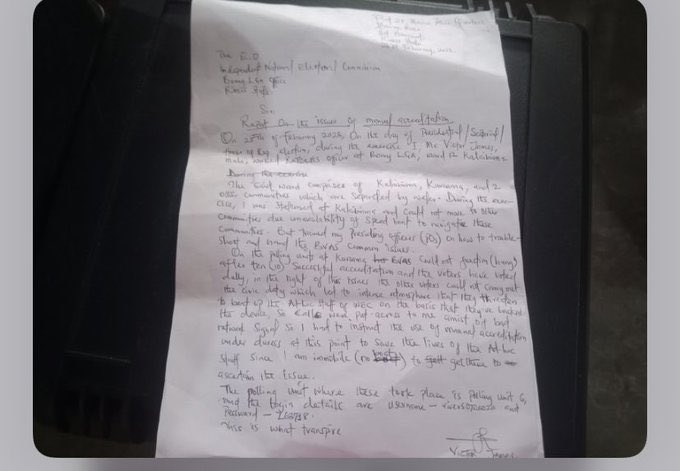 The E.O
Independent National Electoral Commission
Bonny LGA office
Rivers State.
Sir
Report On the issue of manual accreditation
On 25th of February 2023, On the day of Presidential/Senatorial/
House of Rep. election, during the exercise I, Mr Victor James,
male, officer at Bonny LGA, ward 12 Kalaibiama
During the exercise
The said ward comprises of Kalaibiama, Kuruama, and 2
other communities which are separated by water. During the exer-
cise, I was stationed at Kalaibiama and could not move to other
communities due unavailability of speed boat to navigate these
communities. But trained my Presiding officers (POs) on how to trouble-
shoot and the BVAS common issues.
On the polling unit at Kuruama BVAS could not function
after ten (10) successful accreditation and the voters have voted
dully, in the light of this issues the other voters could not carry out
the civic duty which led to intense atmosphere that they threaten
to beat up the Ad-hoc staff of INEC on the basis that they've hacked
the device, So calls were put across to me amidst of bad
network signal Sir I had to instruct the use of manual accreditation
under duress at this point to save the lives of the Ad-hoc
staff since I am immobile (no boat) to get there to
ascertain the issue.
The polling unit where these took place is polling unit 6,
and the login details are username - and
password -
This is what transpire
Victor James